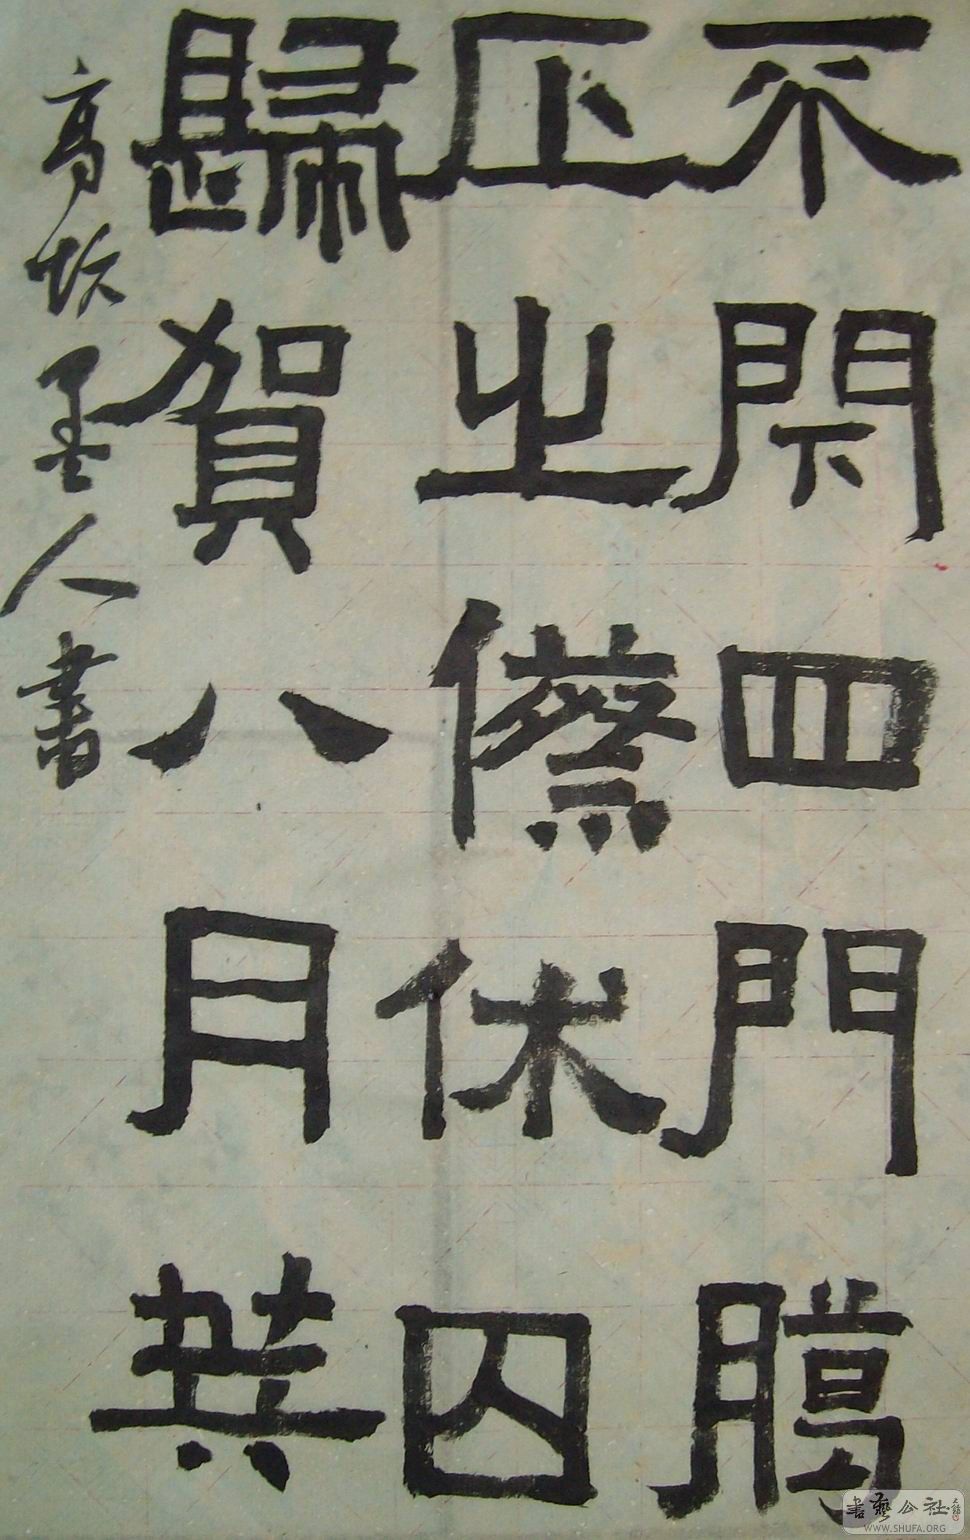 不閇四門臈
正之傺休囚
歸賀八月筭
高坎墨人書
書藝公社
WWW.SHUFA.ORG